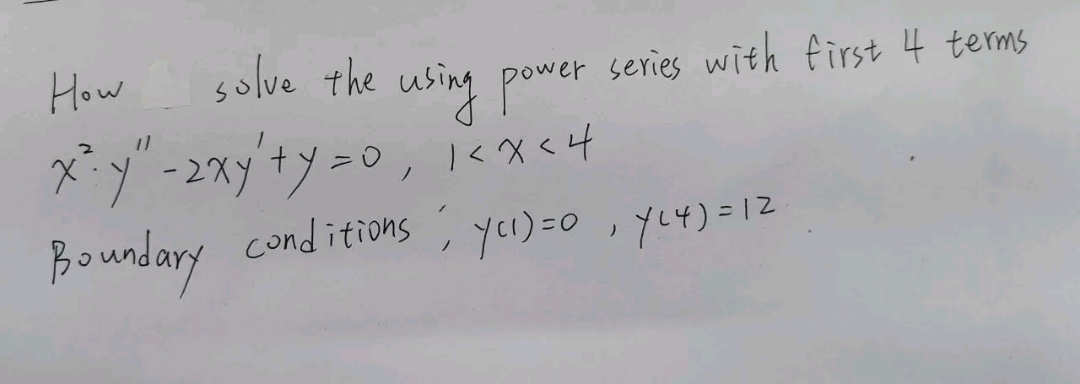 How solve the using power series with first 4 terms
x²·y'' - 2xy' + y = 0, 1 < x < 4
Boundary conditions ; y(1) = 0 , y(4) = 12